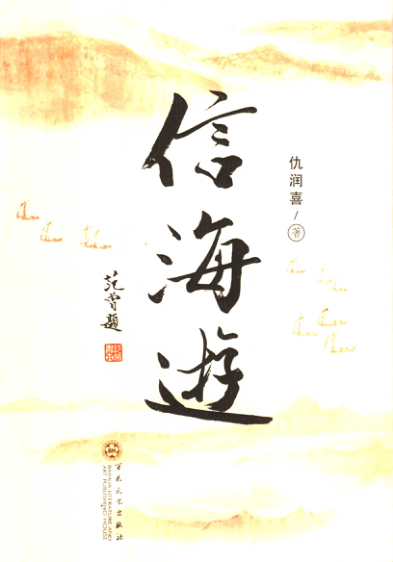 信海遊
仇润喜/著
范曾题
百花文艺出版社
BAIHUA LITERATURE AND
ART PUBLISHING HOUSE